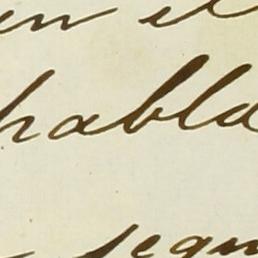 en el
habla
segu